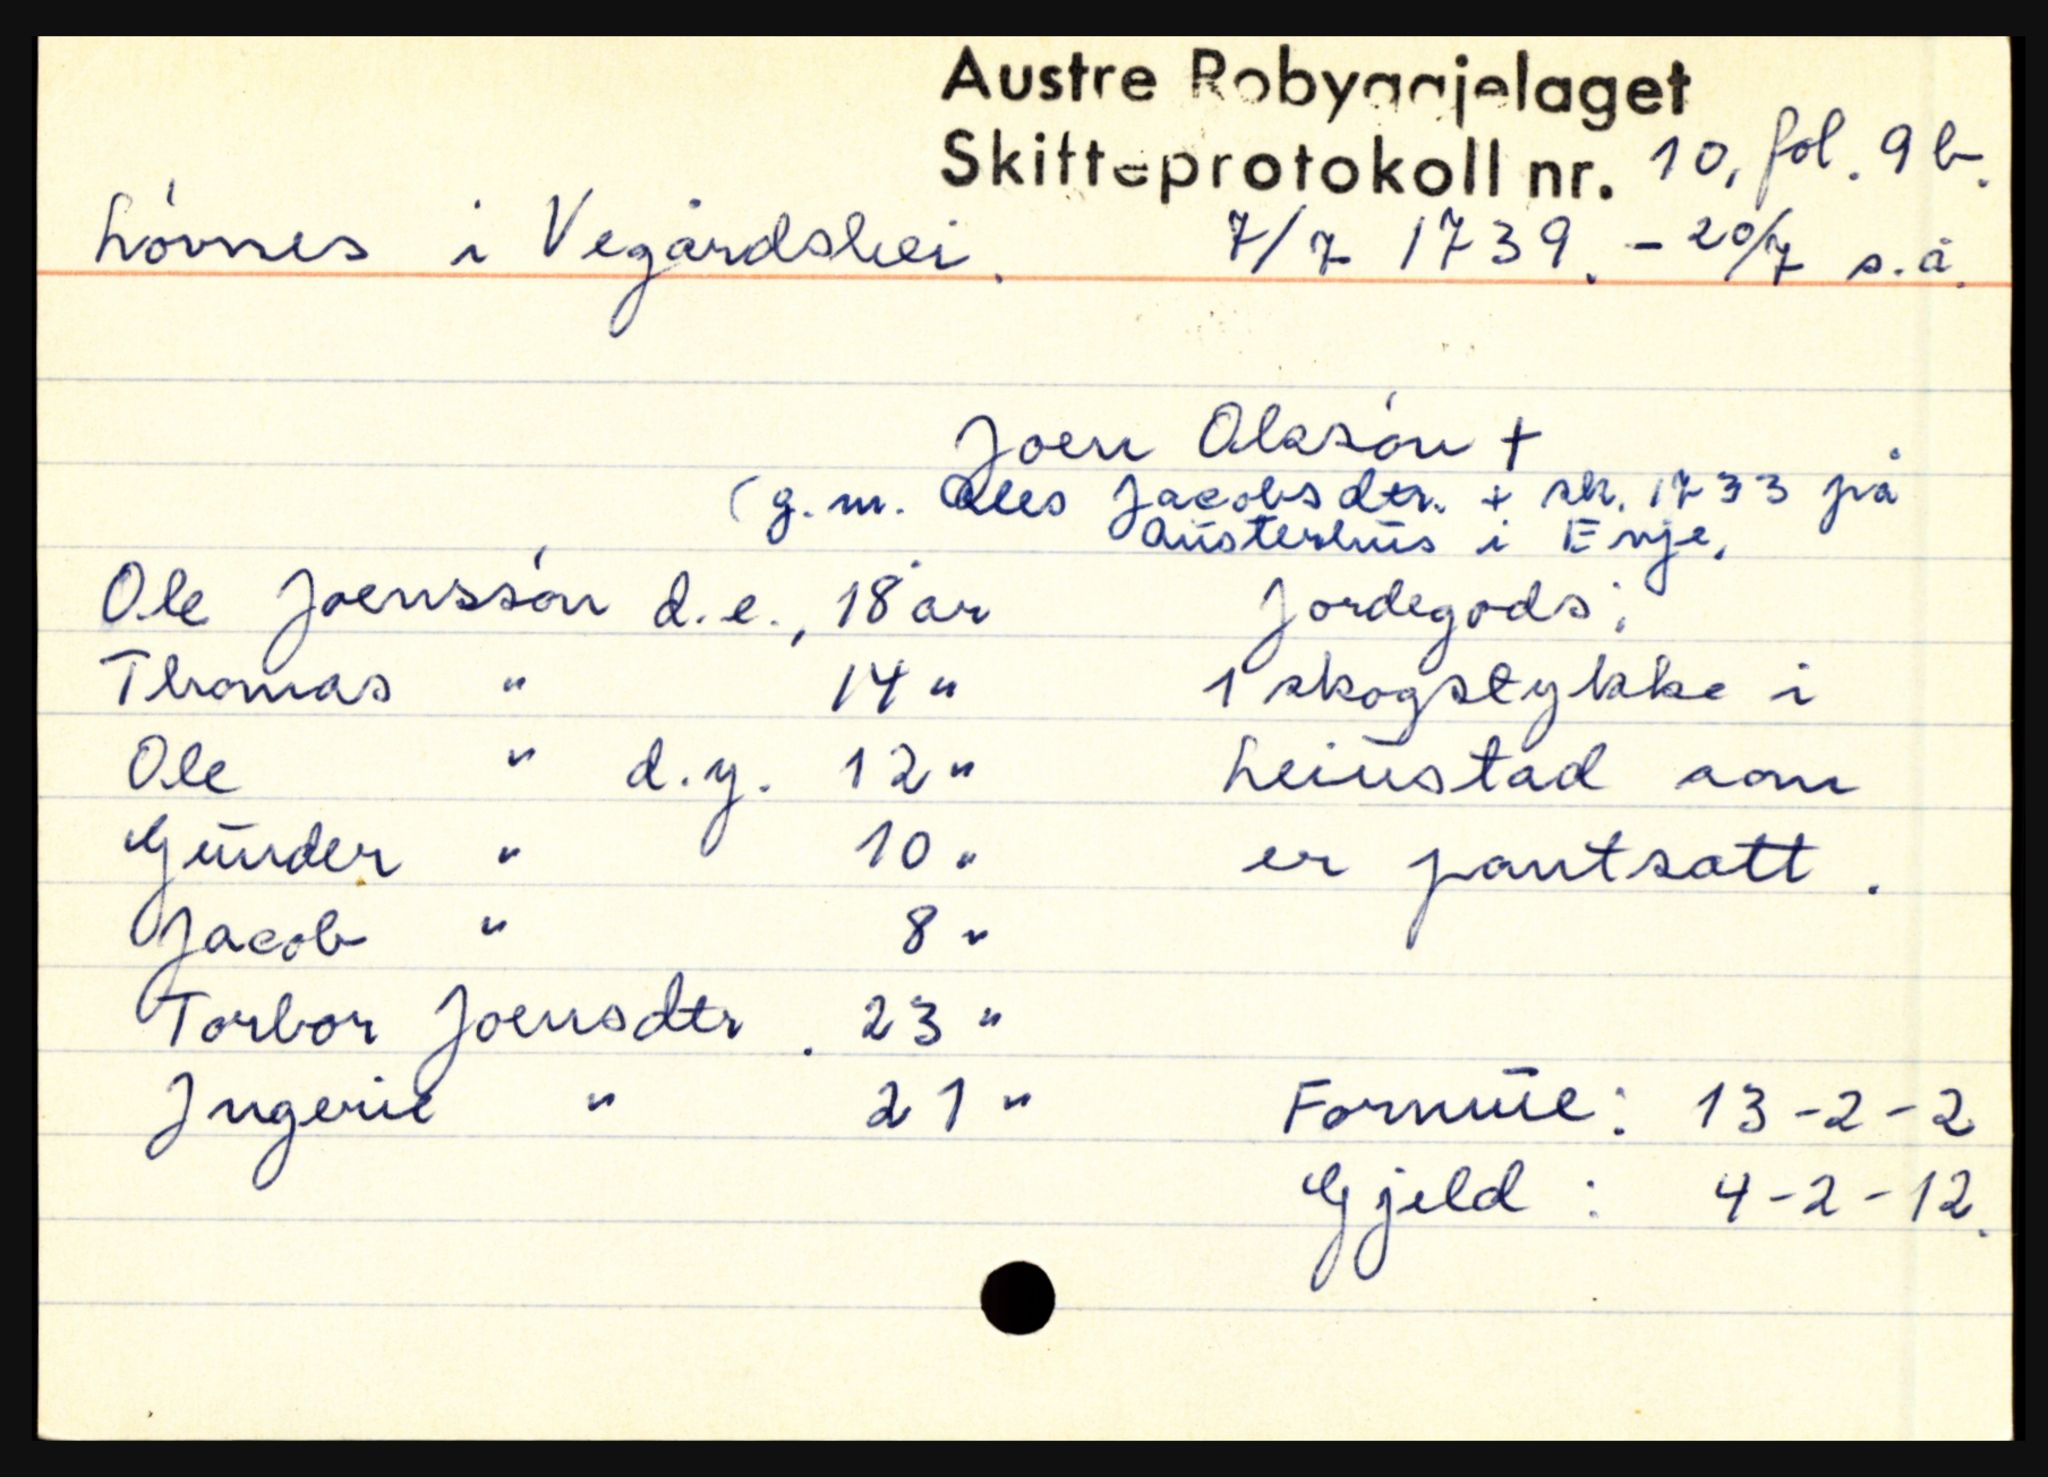 Austre Robyggjelaget
Skifteprotokoll nr. 10, fol. 9 b.
Lóvnes i Vegårdshei. 7/7 1739. - 20/7 s.å.
Joen Olssón +
(g.m. Ales Jacobsdtr. + sk. 1733 på
Austerhus i Evje.
Ole Joenssón d.e., 18 år Jordegods;
Thomas " 14 " 1 skogstykke i
Ole " d.y. 12 " Leiústad som
Gúnder " 10 " er pantsatt.
Jacob " 8 "
Torbor Joensdtr. 23 "
Ingerie " 21 " Formúe: 13-2-2
Gjeld : 4-2-12.